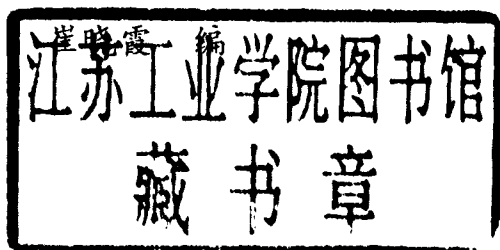 崔晓霞 编
江苏工业学院图书馆
藏书章